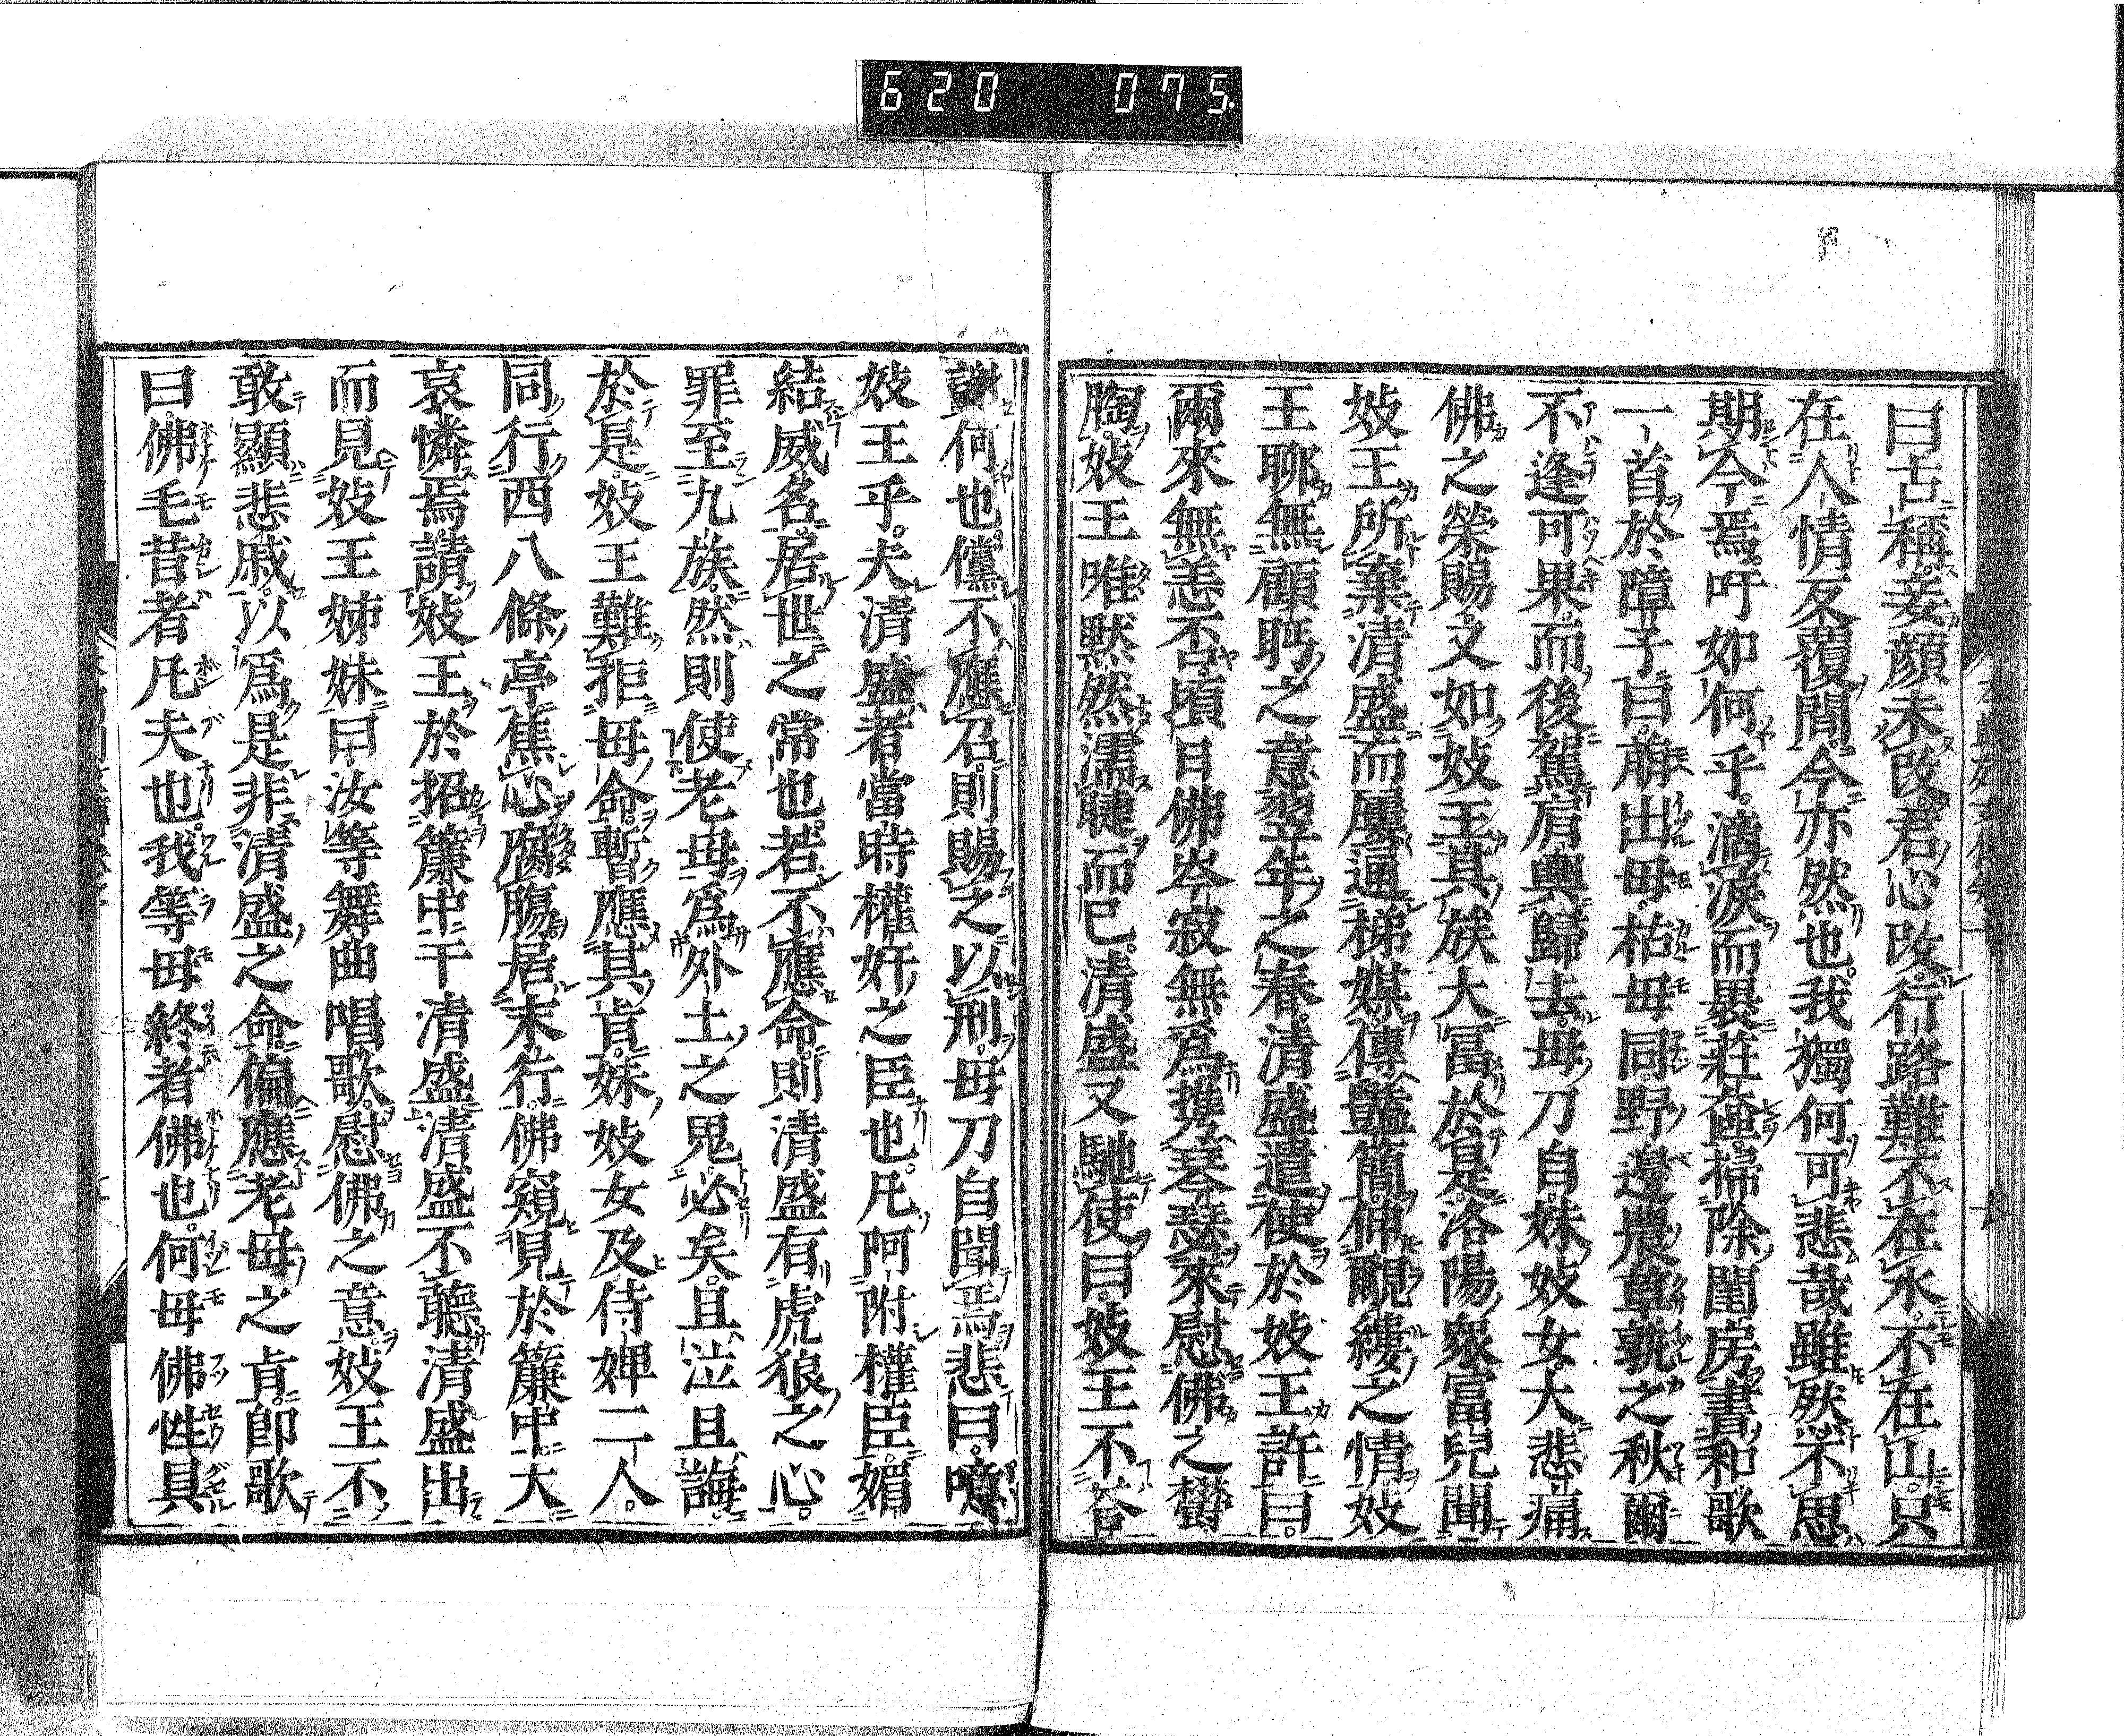 620 075.
曰古稱妾顔未改君心改行路難不在水不在山只
在人情反覆間今亦然也我獨何可悲哉雖然不思
期今焉吁如何乎滴涙而畏莊奩掃除閨房書和歌
一首於障子曰萠出毋枯毋同野邊農草孰之秋爾
不逢可果而後駕肩輿歸去母刀自妹妓女大悲痛
佛之榮賜又如妓王其族大冨於是洛陽衆富兒聞
妓王所棄清盛而屢通梯媒傳豔簡伸覼縷之情妓
王聊無顧眄之意翌年之春清盛遣使於妓王許曰
爾來無恙否頃日佛岑寂無爲携琴瑟來慰佛之欝
胸妓王唯默然濡睫而已清盛又馳使曰妓王不答
謝何也儻不應召則賜之以刑母刀自聞焉悲曰噫
妓王乎夫清盛者當時權奸之臣也凡阿附權臣媚
結威名居世之常也若不應命則清盛有虎狼之心
罪至九族然則使老母爲外土之鬼必矣且泣且誨
於是妓王難拒母命暫應其肯妹妓女及侍婢二人
同行西八條亭焦心腐腸居末行佛窺見於簾中大
哀憐焉請妓王於招簾中干清盛清盛不聽清盛出
而見妓王姊妹曰汝等舞曲唱歌慰佛之意妓王不
敢顯悲戚以爲是非清盛之命偏應老母之肯卽歌
曰佛毛昔者凡夫也我等毋終者佛也何毋佛性具